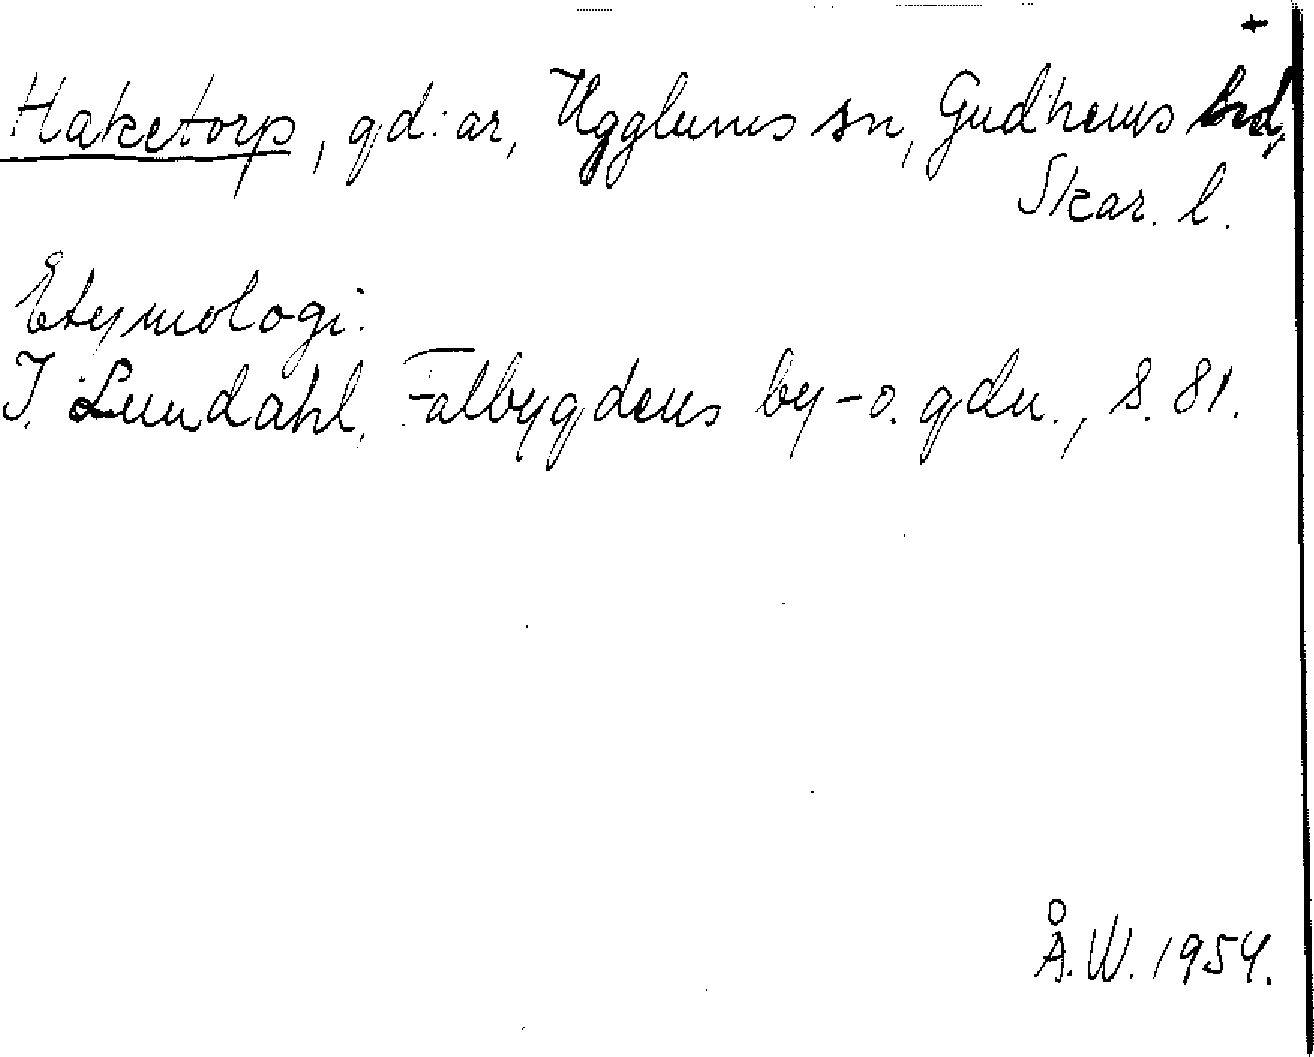 +
Haketorp, gd:ar, Ugglums sn, Gudhems hd,
Skar. l.
Etymologi:
I. Lundahl, Falbygdens by-o. gdn., s. 81.
Å.W. 1954.